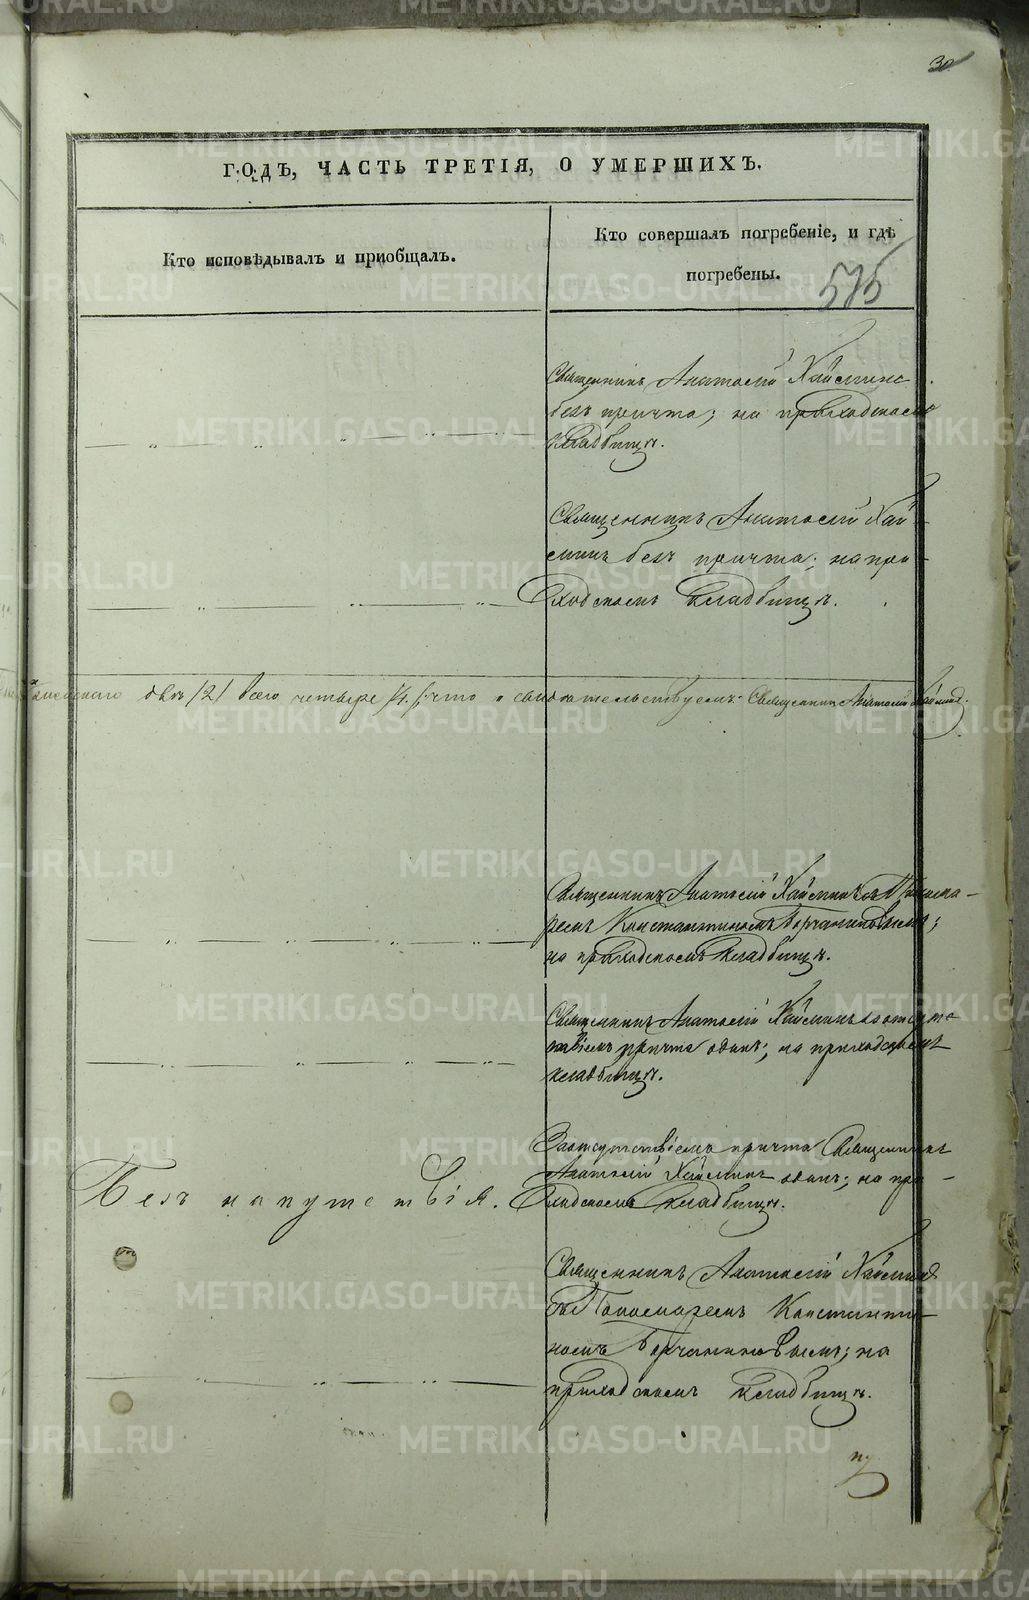 30
ГОДЪ, ЧАСТЬ ТРЕТІЯ, О УМЕРШИХЪ.
Кто исповѣдывалъ и пріобщалъ.
Кто совершалъ погребеніе, и гдѣ
погребены.
575
Священникъ Анатолій Хайминъ
безъ причта; на приходскомъ
кладбищѣ.
Священникъ Анатолій Хай-
минъ безъ причта; на при-
ходскомъ кладбищѣ.
двѣ /2/ всего четыре /4/, что и свидѣтельствуемъ: Священникъ Анатолій Хайминъ.
Священникъ Анатолій Хайминъ съ Понома-
ремъ Константиномъ
на приходскомъ кладбищѣ.
Священникъ Анатолій Хайминъ за отсут-
ствіемъ причта одинъ; на приходскомъ
кладбищѣ.
Безъ напутствія.
За отсутствіемъ причта Священникъ
Анатолій Хайминъ одинъ; на при-
ходскомъ кладбищѣ.
Священникъ Анатолій Хайминъ
съ Пономаремъ Константи-
номъ на
приходскомъ кладбищѣ.
METRIKI.GASO-URAL.RU